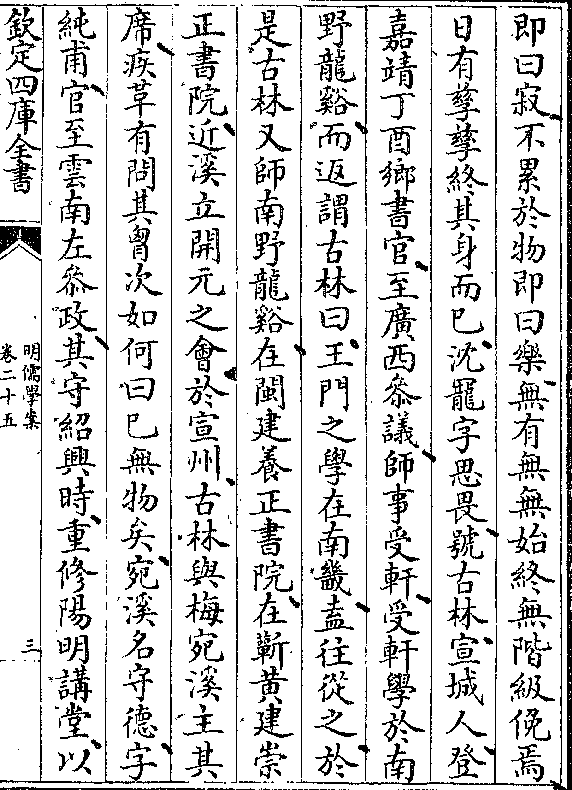 即曰寂不累於物即曰樂無有無無始終無階級俛焉
日有孳孳終其身而已沈寵字思畏號古林宣城人登
嘉靖丁酉鄉書官至廣西叅議師事受軒受軒學於南
野龍谿而返謂古林曰王門之學在南畿盍往從之於
是古林又師南野龍谿在閩建養正書院在蘄黄建崇
正書院近溪立開元之會於宣州古林與梅宛溪主其
席疾革有問其胷次如何曰已無物矣宛溪名守德字
純甫官至雲南左叅政其守紹興時重修陽明講堂以
欽定四庫全書
明儒學案
卷二十五
三